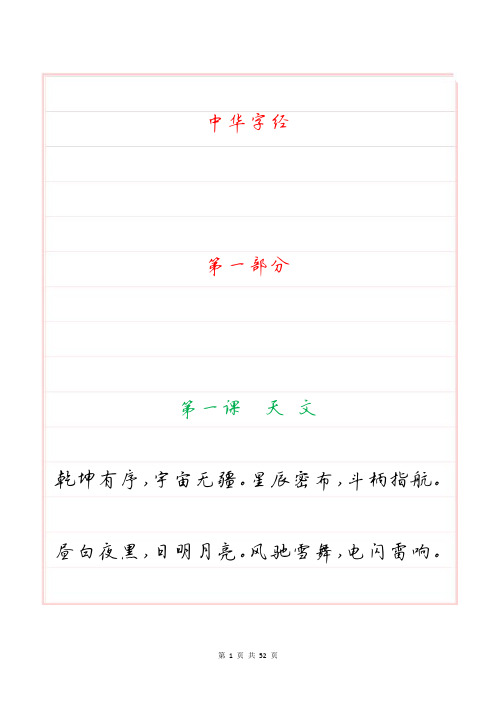 中华字经
第一部分
第一课 天 文
乾坤有序,宇宙无疆。星辰密布,斗柄指航。
昼白夜黑,日明月亮。风驰雪舞,电闪雷响。
第 1 页 共 52 页